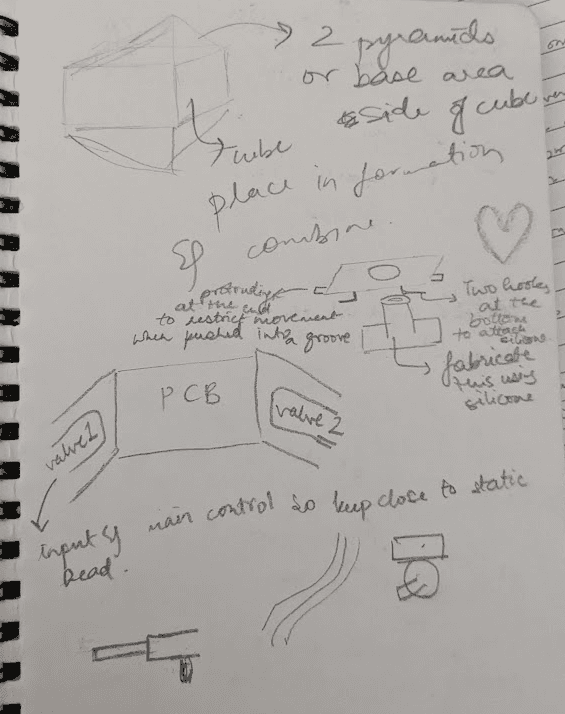 2 pyramids
or base area
side of cube
cube
place in formation
& combine.
protruding
at the end
to restrict movement
when pushed into a groove
Two hooks
at the
bottom
to attach
silicone
fabricate
this using
silicone
PCB
valve1
valve 2
input & main control so keep close to static
head.